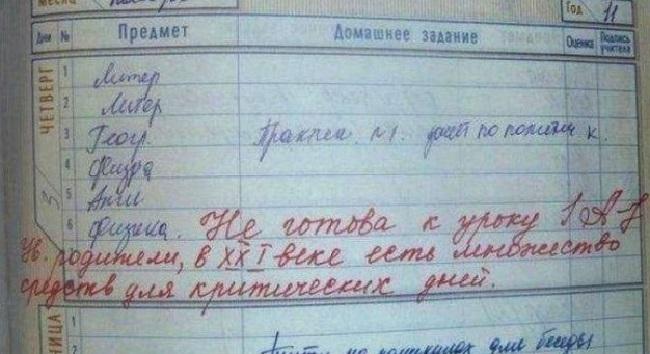 Месяц
Год 11
Дни № Предмет Домашнее задание Оценка Подпись учителя
ЧЕТВЕРГ
1 Литер
2 Литер
3 Геогр. Практич.
4 Физра
5 Англ
3
6 Физика. Не готова к уроку
Ув. родители, в XXI веке есть множество
средств для критических дней.
1
2 для беседы